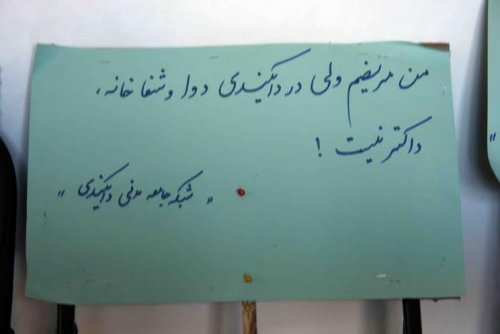 من مریضم ولی در دایکندی دوا و شفاخانه،
داکتر نیست !
" شبکه جامعه مدنی دایکندی "